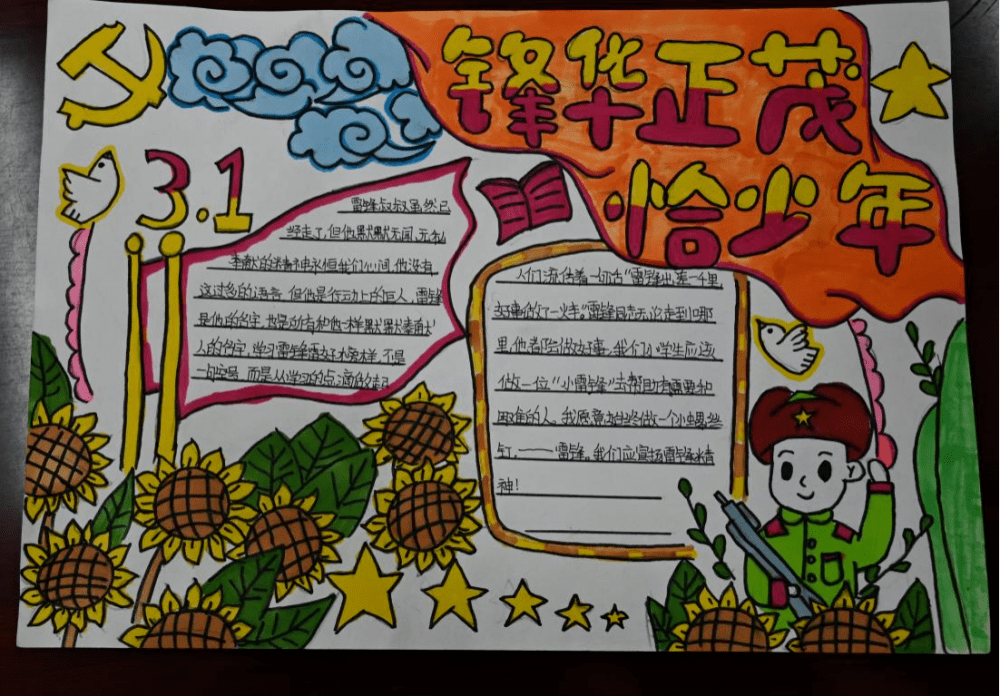 锋华正茂
恰少年
3.1
雷锋叔叔虽然已
经走了,但他默默无闻,无私
奉献的精神永恒我们心间,他没有
这过多的语言,但他是行动上的巨人,雷锋
是他的名字,也是所有和他一样默默奉献
人的名字,学习雷锋好榜样,不是
一句空号,而是从学习的点滴做起
人们流传着一句话“雷锋出差一千里,
好事做了一火车。”雷锋同志无论走到哪
里,他都会做好事。我们小学生应该
做一位“小雷锋”去帮助有需要和
困难的人。我愿意始终做一个小螺丝
钉,——雷锋。我们应宣扬雷锋精
神!